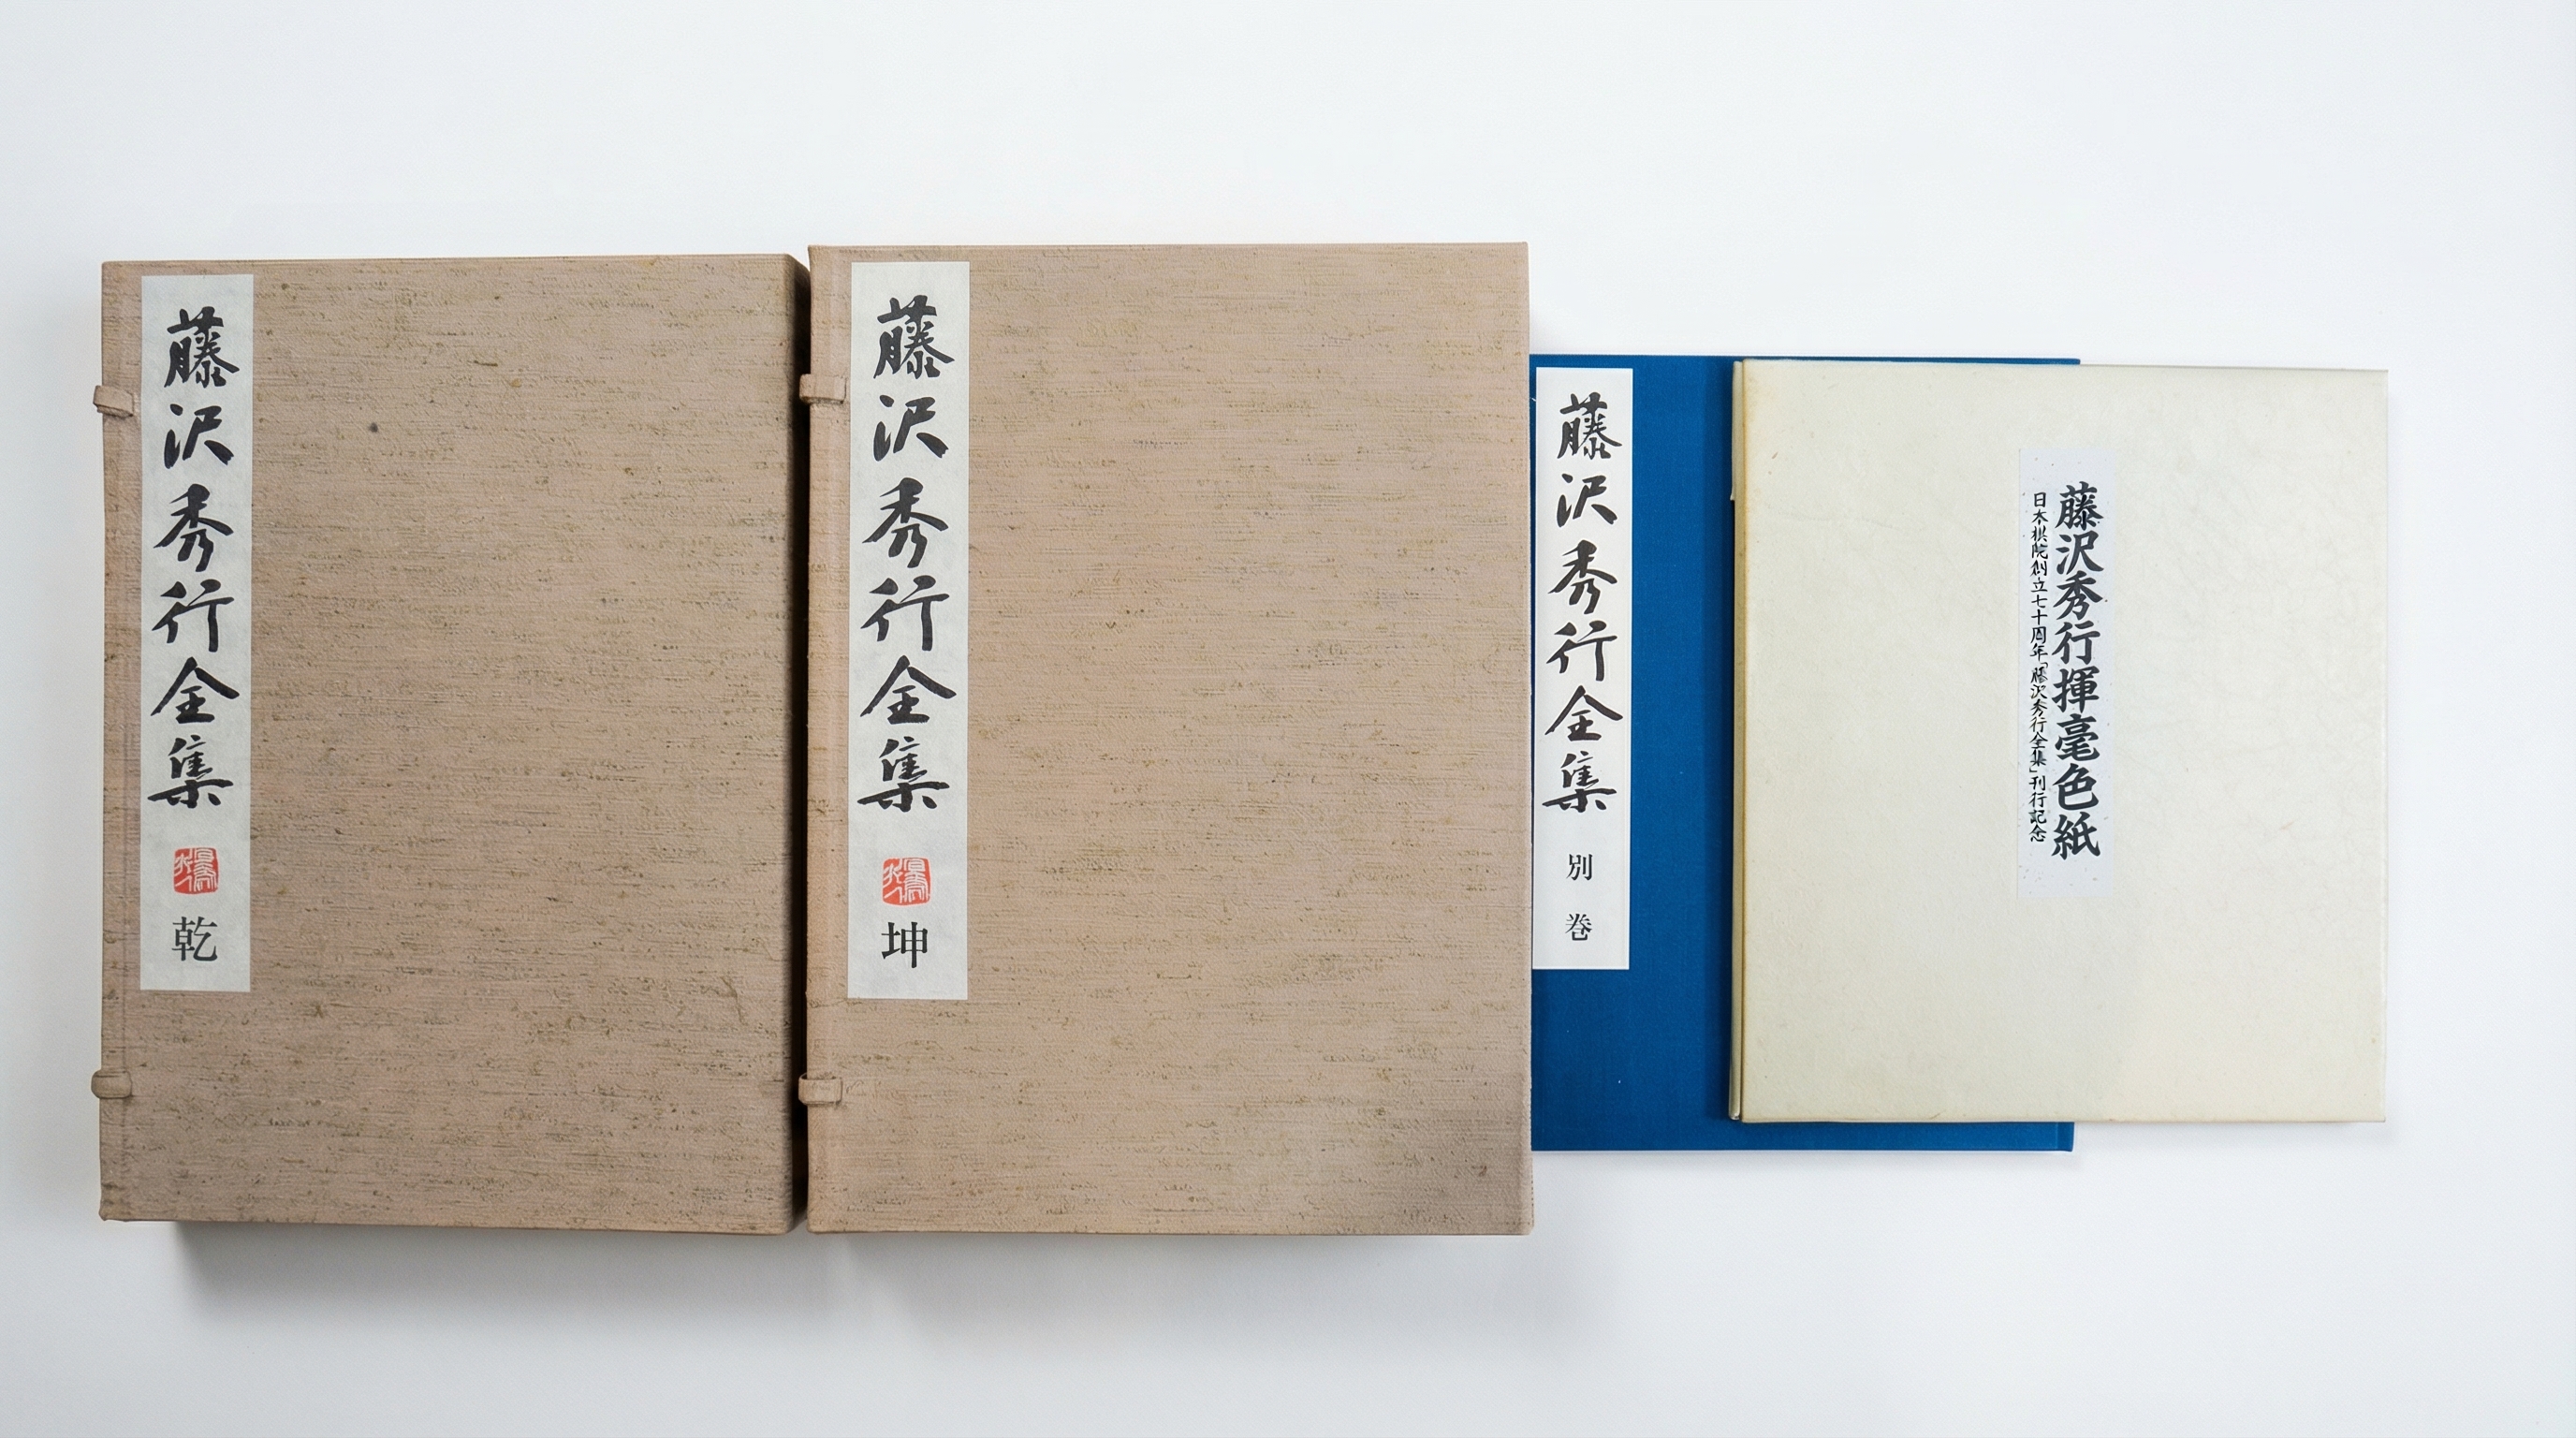 藤沢秀行全集
乾
藤沢秀行全集
坤
藤沢秀行全集
別巻
藤沢秀行揮毫色紙
日本棋院創立七十周年「藤沢秀行全集」刊行記念